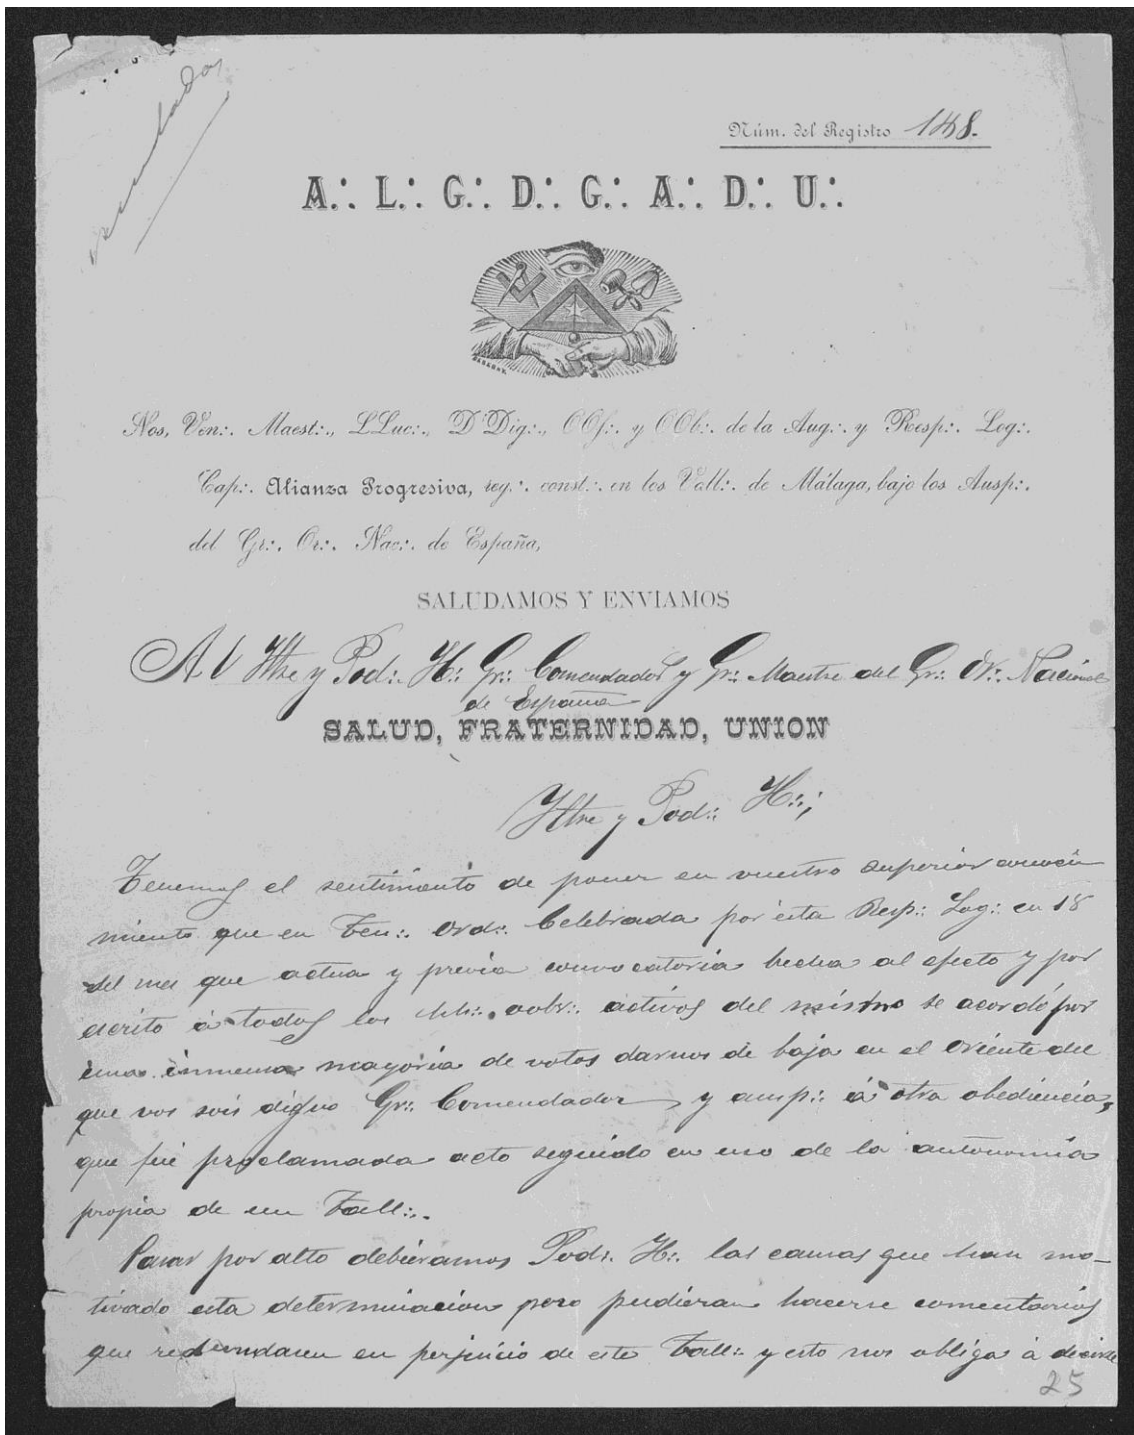 Núm. del Registro 148.
A.·. L.·. G.·. D.·. G.·. A.·. D.·. U.·.
Nos, Ven.·. Maest.·., LLuc.·., DDig.·., OOf.·. y OOb.·. de la Aug.·. y Resp.·. Log.·.
Cap.·. Alianza Progresiva, reg.·. const.·. en los Vall.·. de Málaga, bajo los Ausp.·.
del Gr.·. Or.·. Nac.·. de España,
SALUDAMOS Y ENVIAMOS
Al Iltre y Pod.·. H.·. Gr.·. Comendador y Gr.·. Maestre del Gr.·. Or.·. Nacional
de España
SALUD, FRATERNIDAD, UNION
Iltre y Pod.·. H.·.;
Tenemos el sentimiento de poner en vuestro superior conoci
miento que en Ten.·. Ord.·. Celebrada por esta Resp.·. Log.·. en 18
del mes que actua y previa convocatoria hecha al efecto y por
escrito á todos los hh.·. cotz.·. activos del mismo se acordó por
una inmensa mayoria de votos darnos de baja en el Oriente del
que vos sois digno Gr.·. Comendador y ausp.·. á otra obediencia,
que fué proclamada acto seguido en uso de la autonomia
propia de un Tall.·.
Pasar por alto debieramos Pod.·. H.·. las causas que han mo-
tivado esta determinacion pero pudieran hacerse comentarios
que redundasen en perjuicio de este Tall.·. y esto nos obliga á decirle
25